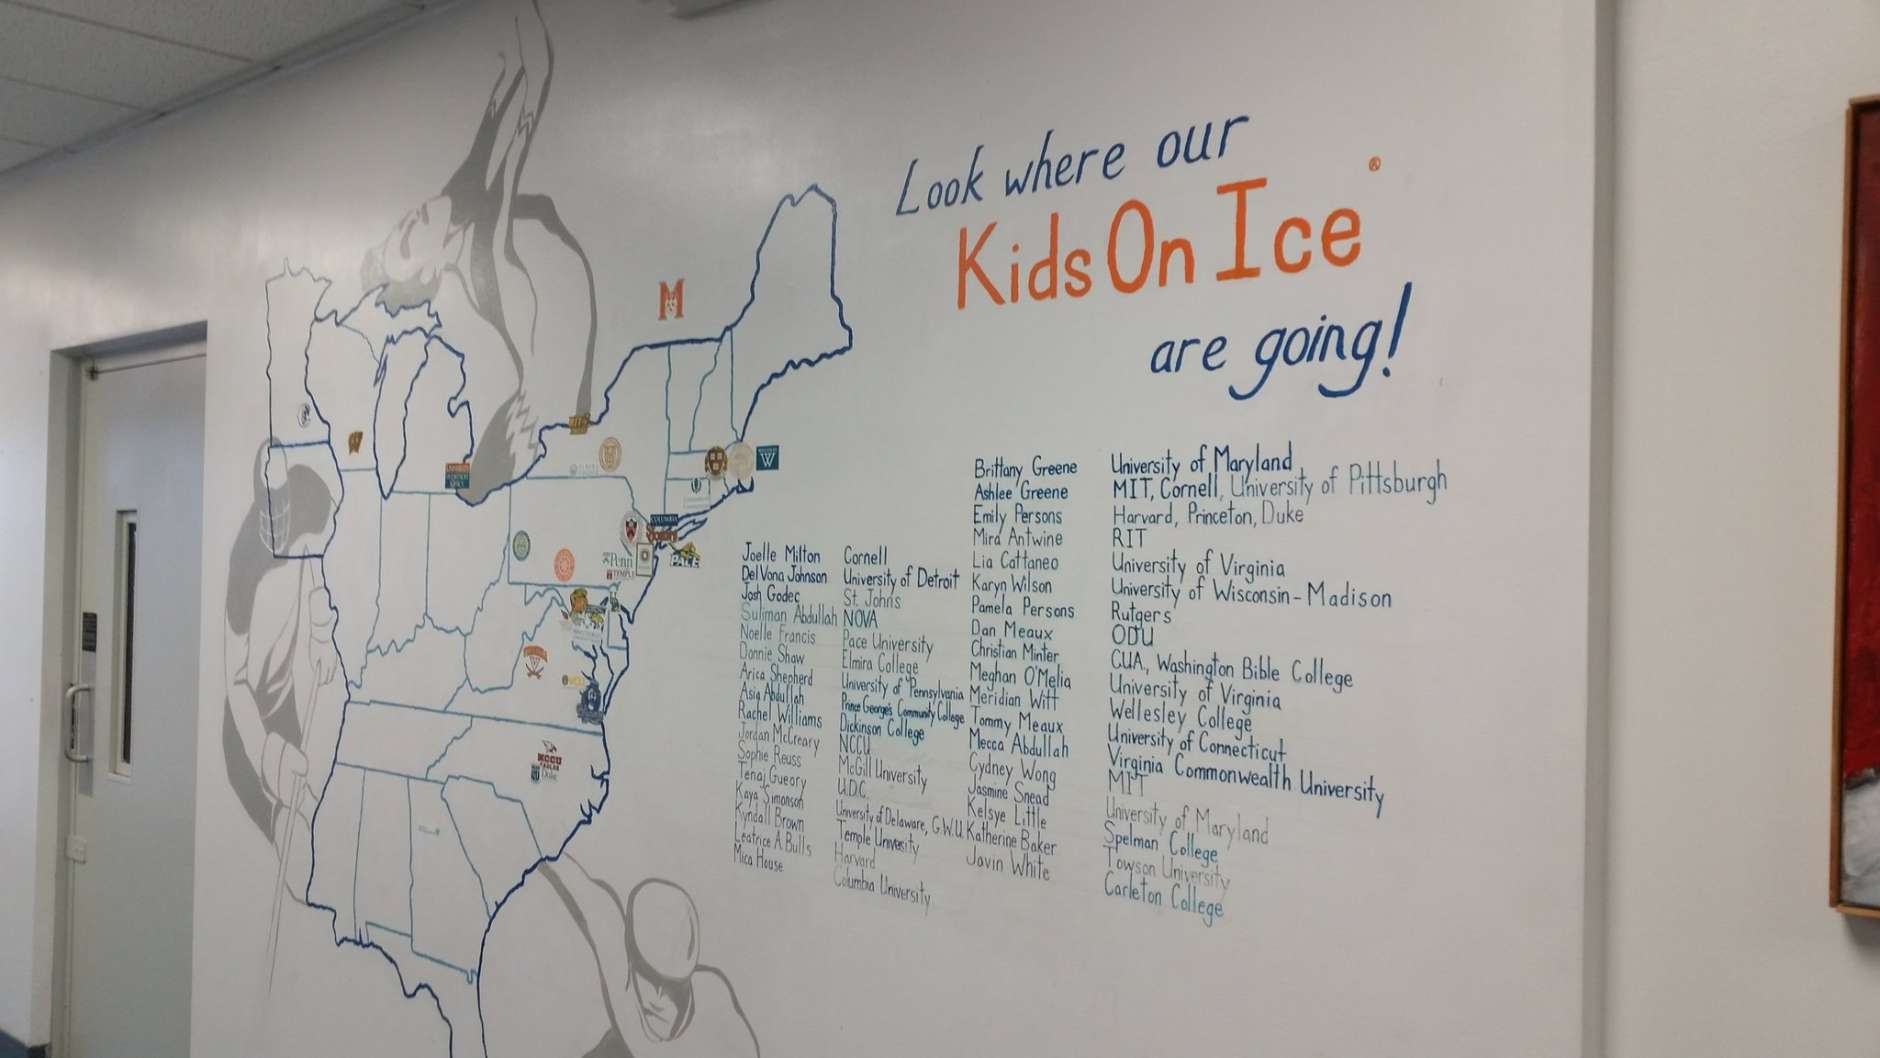 Look where our
Kids On Ice®
are going!
Brittany Greene University of Maryland
Ashlee Greene MIT, Cornell, University of Pittsburgh
Emily Persons Harvard, Princeton, Duke
Mira Antwine RIT
Lia Cattaneo University of Virginia
Karyn Wilson University of Wisconsin-Madison
Pamela Persons Rutgers
Dan Meaux ODU
Christian Minter CUA, Washington Bible College
Meghan O'Melia University of Virginia
Meridian Witt Wellesley College
Tommy Meaux University of Connecticut
Mecca Abdullah Virginia Commonwealth University
Cydney Wong MIT
Jasmine Snead University of Maryland
Kelsye Little Spelman College
Katherine Baker Towson University
Javin White Carleton College
Joelle Milton Cornell
DelVona Johnson University of Detroit
Josh Godec St. Johns
Suliman Abdullah NOVA
Noelle Francis Pace University
Donnie Shaw Elmira College
Arica Shepherd University of Pennsylvania
Asia Abdullah Prince George's Community College
Rachel Williams Dickinson College
Jordan McCreary NCCU
Sophie Reuss McGill University
Tenaj Gueory U.D.C.
Kaya Simonson University of Delaware, G.W.U.
Kyndall Brown Temple University
Leatrice A Bulls Harvard
Mica House Columbia University
M
W
COLUMBIA
PACE
Penn
TEMPLE
VCU
NCCU
EAGLES
Duke